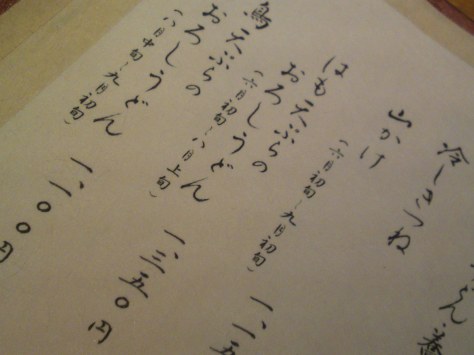 冷しきつね
山かけ
(六月初旬~九月初旬)
一、一五
はも天ぷらの
おろしうどん
(六月初旬~八月上旬)
一、三五〇円
鳥天ぷらの
おろしうどん
(八月中旬~九月初旬)
一、一〇〇円